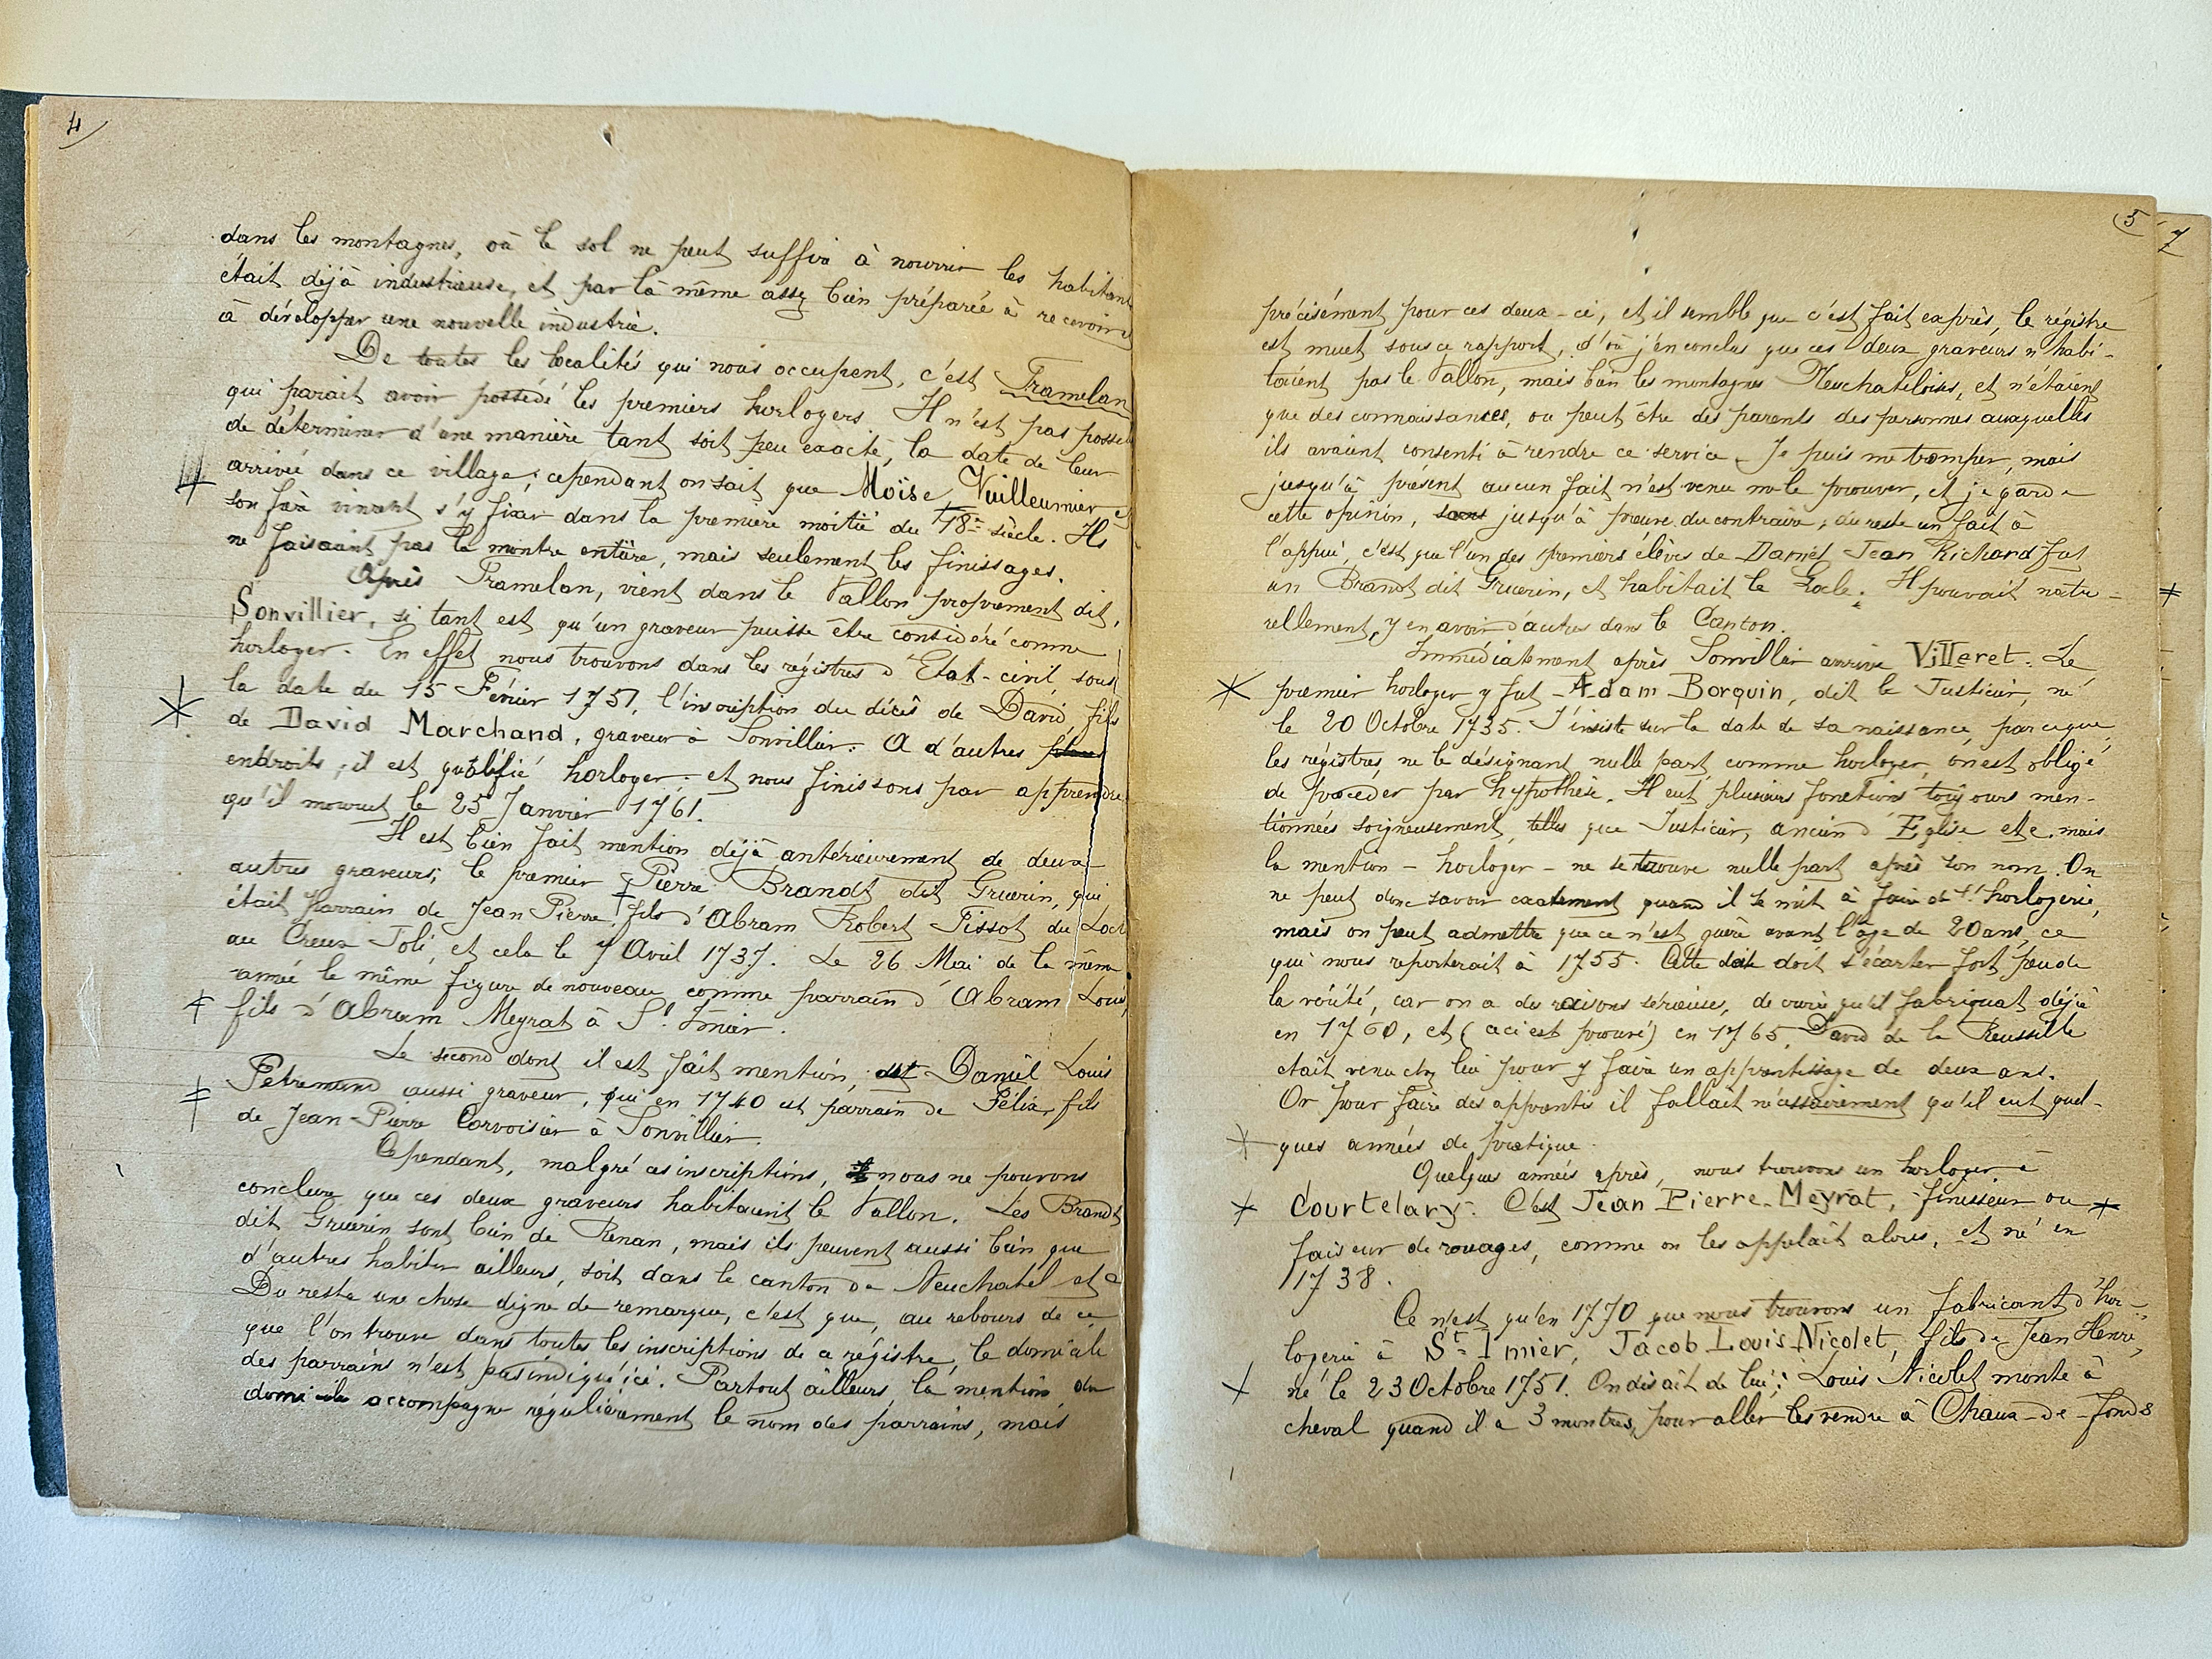 4
dans les montagnes, où le sol ne peut suffire à nourrir les habitants
était déjà industrieuse, et par là même assez bien préparée à recevoir
à développer une nouvelle industrie.
De toutes les localités qui nous occupent, c'est Tramelan
qui parait avoir possédé les premiers horlogers. Il n'est pas possi
de déterminer d'une manière tant soit peu exacte, la date de leur
arrivée dans ce village; cependant on sait que Moïse Vuilleumier
son frère vinrent s'y fixer dans la première moitié du 18e siècle. Ils
ne faisaient pas la montre entière, mais seulement les finissages.
Après Tramelan, vient dans le Vallon proprement dit,
Sonvillier, si tant est qu'un graveur puisse être considéré comme
horloger. En effet nous trouvons dans les régistres d'Etat-civil sous
la date du 15 Février 1751, l'inscription du décès de David, fils
de David Marchand, graveur à Sonvillier. A d'autres
endroits, il est qualifié horloger; et nous finissons par apprendre
qu'il mourut le 25 Janvier 1761.
Il est bien fait mention déjà antérieurement de deux
autres graveurs; le premier Pierre Brandt dit Gruerin, qui
était parrain de Jean Pierre, fils d'Abram Robert Tissot du Locl
au Creux Joli, et cela le 7 Avril 1737. Le 26 Mai de la même
année le même figure de nouveau comme parrain d'Abram Louis,
fils d'Abram Meyrat à St. Imier.
Le second dont il est fait mention, est Daniel Louis
Petremand aussi graveur, qui en 1740 est parrain de Félix, fils
de Jean-Pierre Corvoisier à Sonvillier.
Cependant, malgré ces inscriptions, nous ne pouvons
conclure que ces deux graveurs habitaient le Vallon. Les Brandt
dit Gruerin sont bien de Renan, mais ils peuvent aussi bien que
d'autres habiter ailleurs, soit dans le canton de Neuchatel etc
Du reste une chose digne de remarque, c'est que, au rebours de ce
que l'on trouve dans toutes les inscriptions de ce régistre, le domicile
des parrains n'est pas indiqué ici. Partout ailleurs, la mention du
domicile accompagne régulièrement le nom des parrains, mais
5
7
précisément pour ces deux-ci, et il semble que c'est fait exprès, le régistre
est muet sous ce rapport, d'où j'en conclus que ces deux graveurs n'habi-
taient pas le Vallon, mais bien les montagnes Neuchateloises, et n'étaient
que des connaissances, ou peut être des parents des personnes auxquelles
ils avaient consenti à rendre ce service. Je puis me tromper, mais
jusqu'à présent aucun fait n'est venu me le prouver, et je garde
cette opinion, sans jusqu'à preuve du contraire; du reste un fait à
l'appui, c'est que l'un des premiers élèves de Daniel Jean Richard fut
un Brandt dit Gruerin, et habitait le Locle. Il pouvait natu-
rellement, y en avoir d'autres dans le Canton.
Immédiatement après Sonvillier arrive Villeret. Le
premier horloger y fut Adam Borquin, dit le Justicier, né
le 20 Octobre 1735. J'insiste sur la date de sa naissance, parceque
les régistres, ne le désignant nulle part comme horloger, on est obligé
de procéder par hypothèse. Il eut plusieurs fonctions toujours men-
tionnées soigneusement, telles que Justicier, ancien d'Eglise etc. mais
la mention - horloger - ne se trouve nulle part après son nom. On
ne peut donc savoir exactement quand il se mit à faire de l'horlogerie,
mais on peut admettre que ce n'est guère avant l'âge de 20 ans, ce
qui nous reporterait à 1755. Cette date doit s'écarter fort peu de
la vérité, car on a des raisons sérieuses, de croire qu'il fabriquat déjà
en 1760, et (ceci est prouvé) en 1765, David de la Reussille
était venu chez lui pour y faire un apprentissage de deux ans.
Or pour faire des apprentis il fallait nécessairement qu'il eut quel-
ques années de pratique.
Quelques années après, nous trouvons un horloger à
Courtelary. C'est Jean Pierre Meyrat, finisseur ou
faiseur de rouages, comme on les appelait alors, et né en
1738.
Ce n'est qu'en 1770 que nous trouvons un fabricant d'hor-
logerie à St. Imier, Jacob Louis Nicolet, fils de Jean Henri,
né le 23 Octobre 1751. On disait de lui: Louis Nicolet monte à
cheval quand il a 3 montres, pour aller les vendre à Chaux-de-fonds